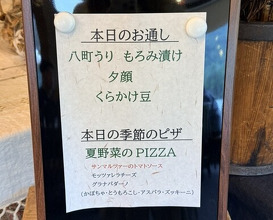 本日のお通し
八町うり もろみ漬け
夕顔
くらかけ豆
本日の季節のピザ
夏野菜のPIZZA
サンマルツァーノのトマトソース
モッツァレラチーズ
グラナパダーノ
(かぼちゃ・とうもろこし・アスパラ・ズッキーニ)